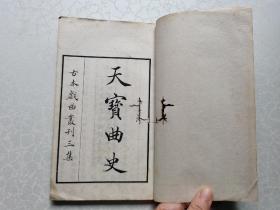 天寶曲史
古本戲曲叢刊三集